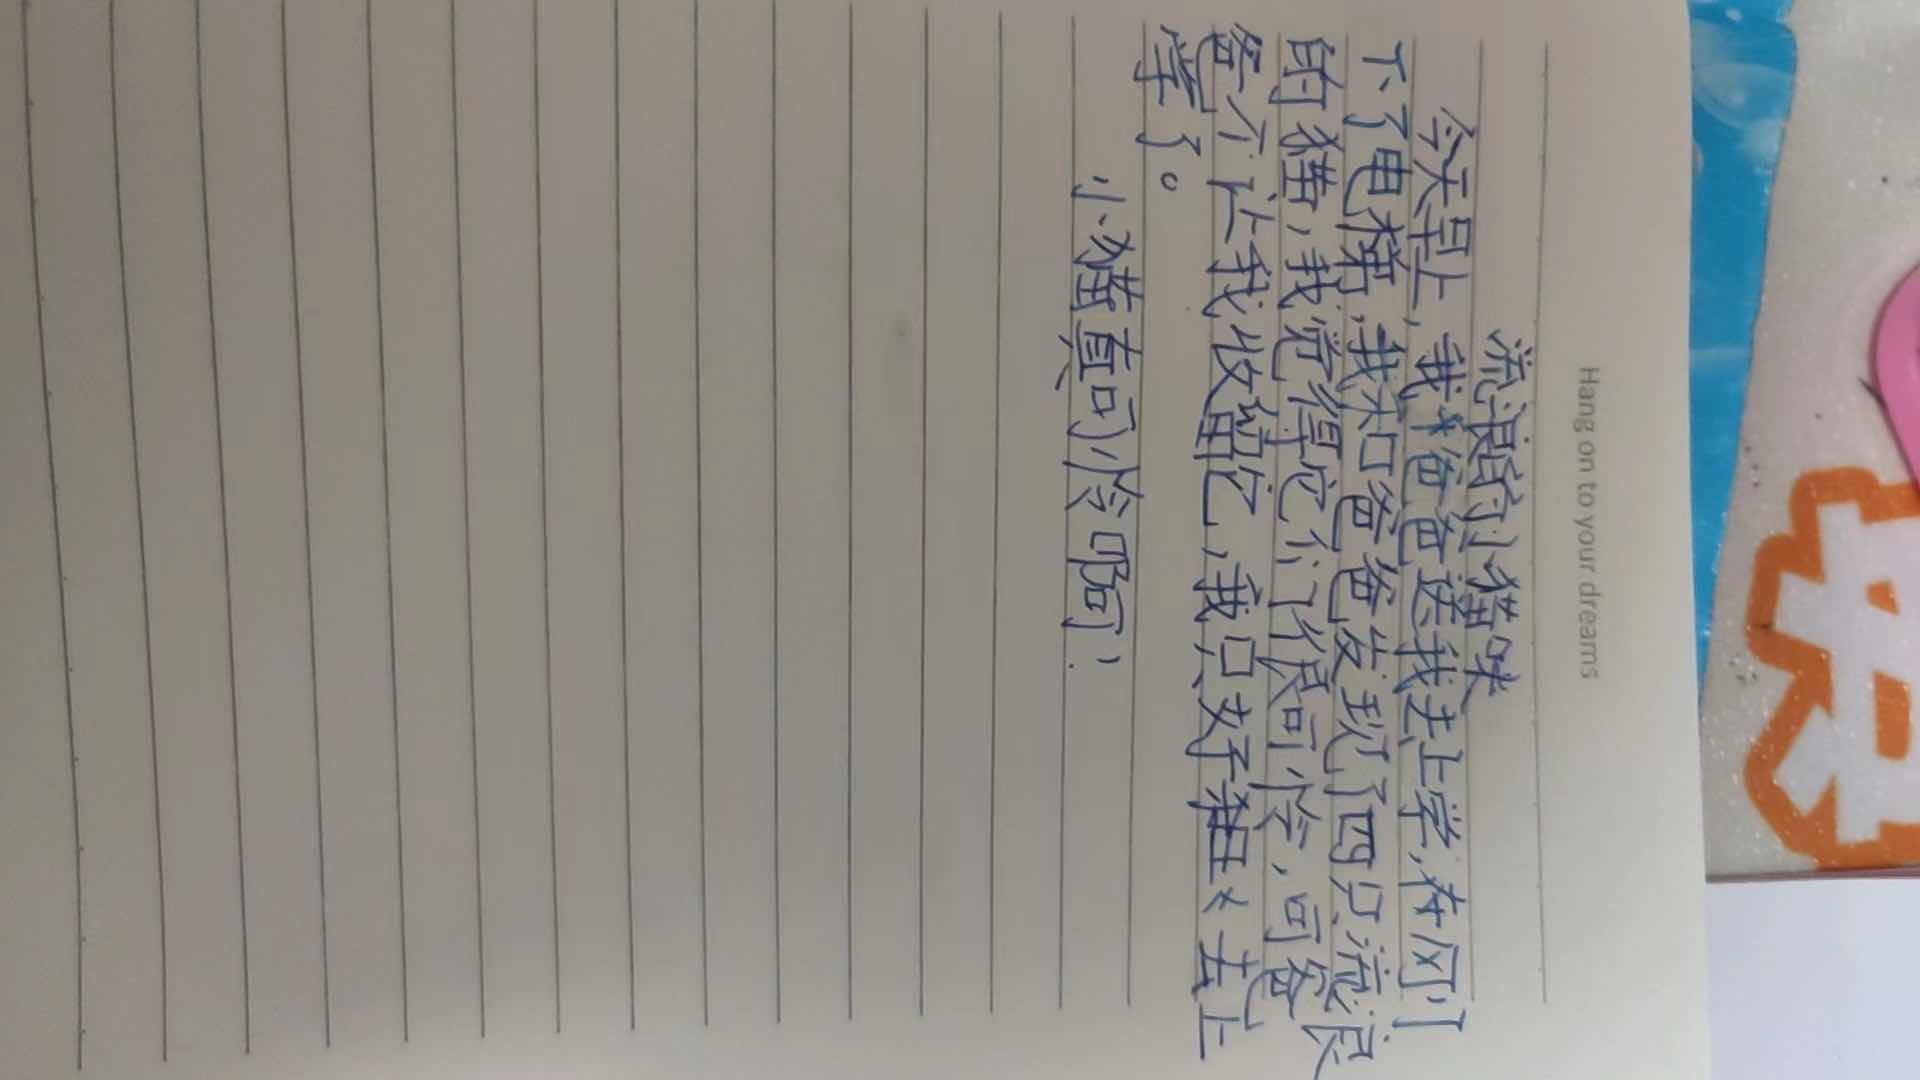 Hang on to your dreams
流浪的小猫咪
今天早上，我爸爸送我去上学，在刚
下了电梯，我和爸爸发现了四只流浪
的猫，我觉得它们很可怜，可爸
爸不让我收留它，我只好去上
学了。
小猫真可怜啊！